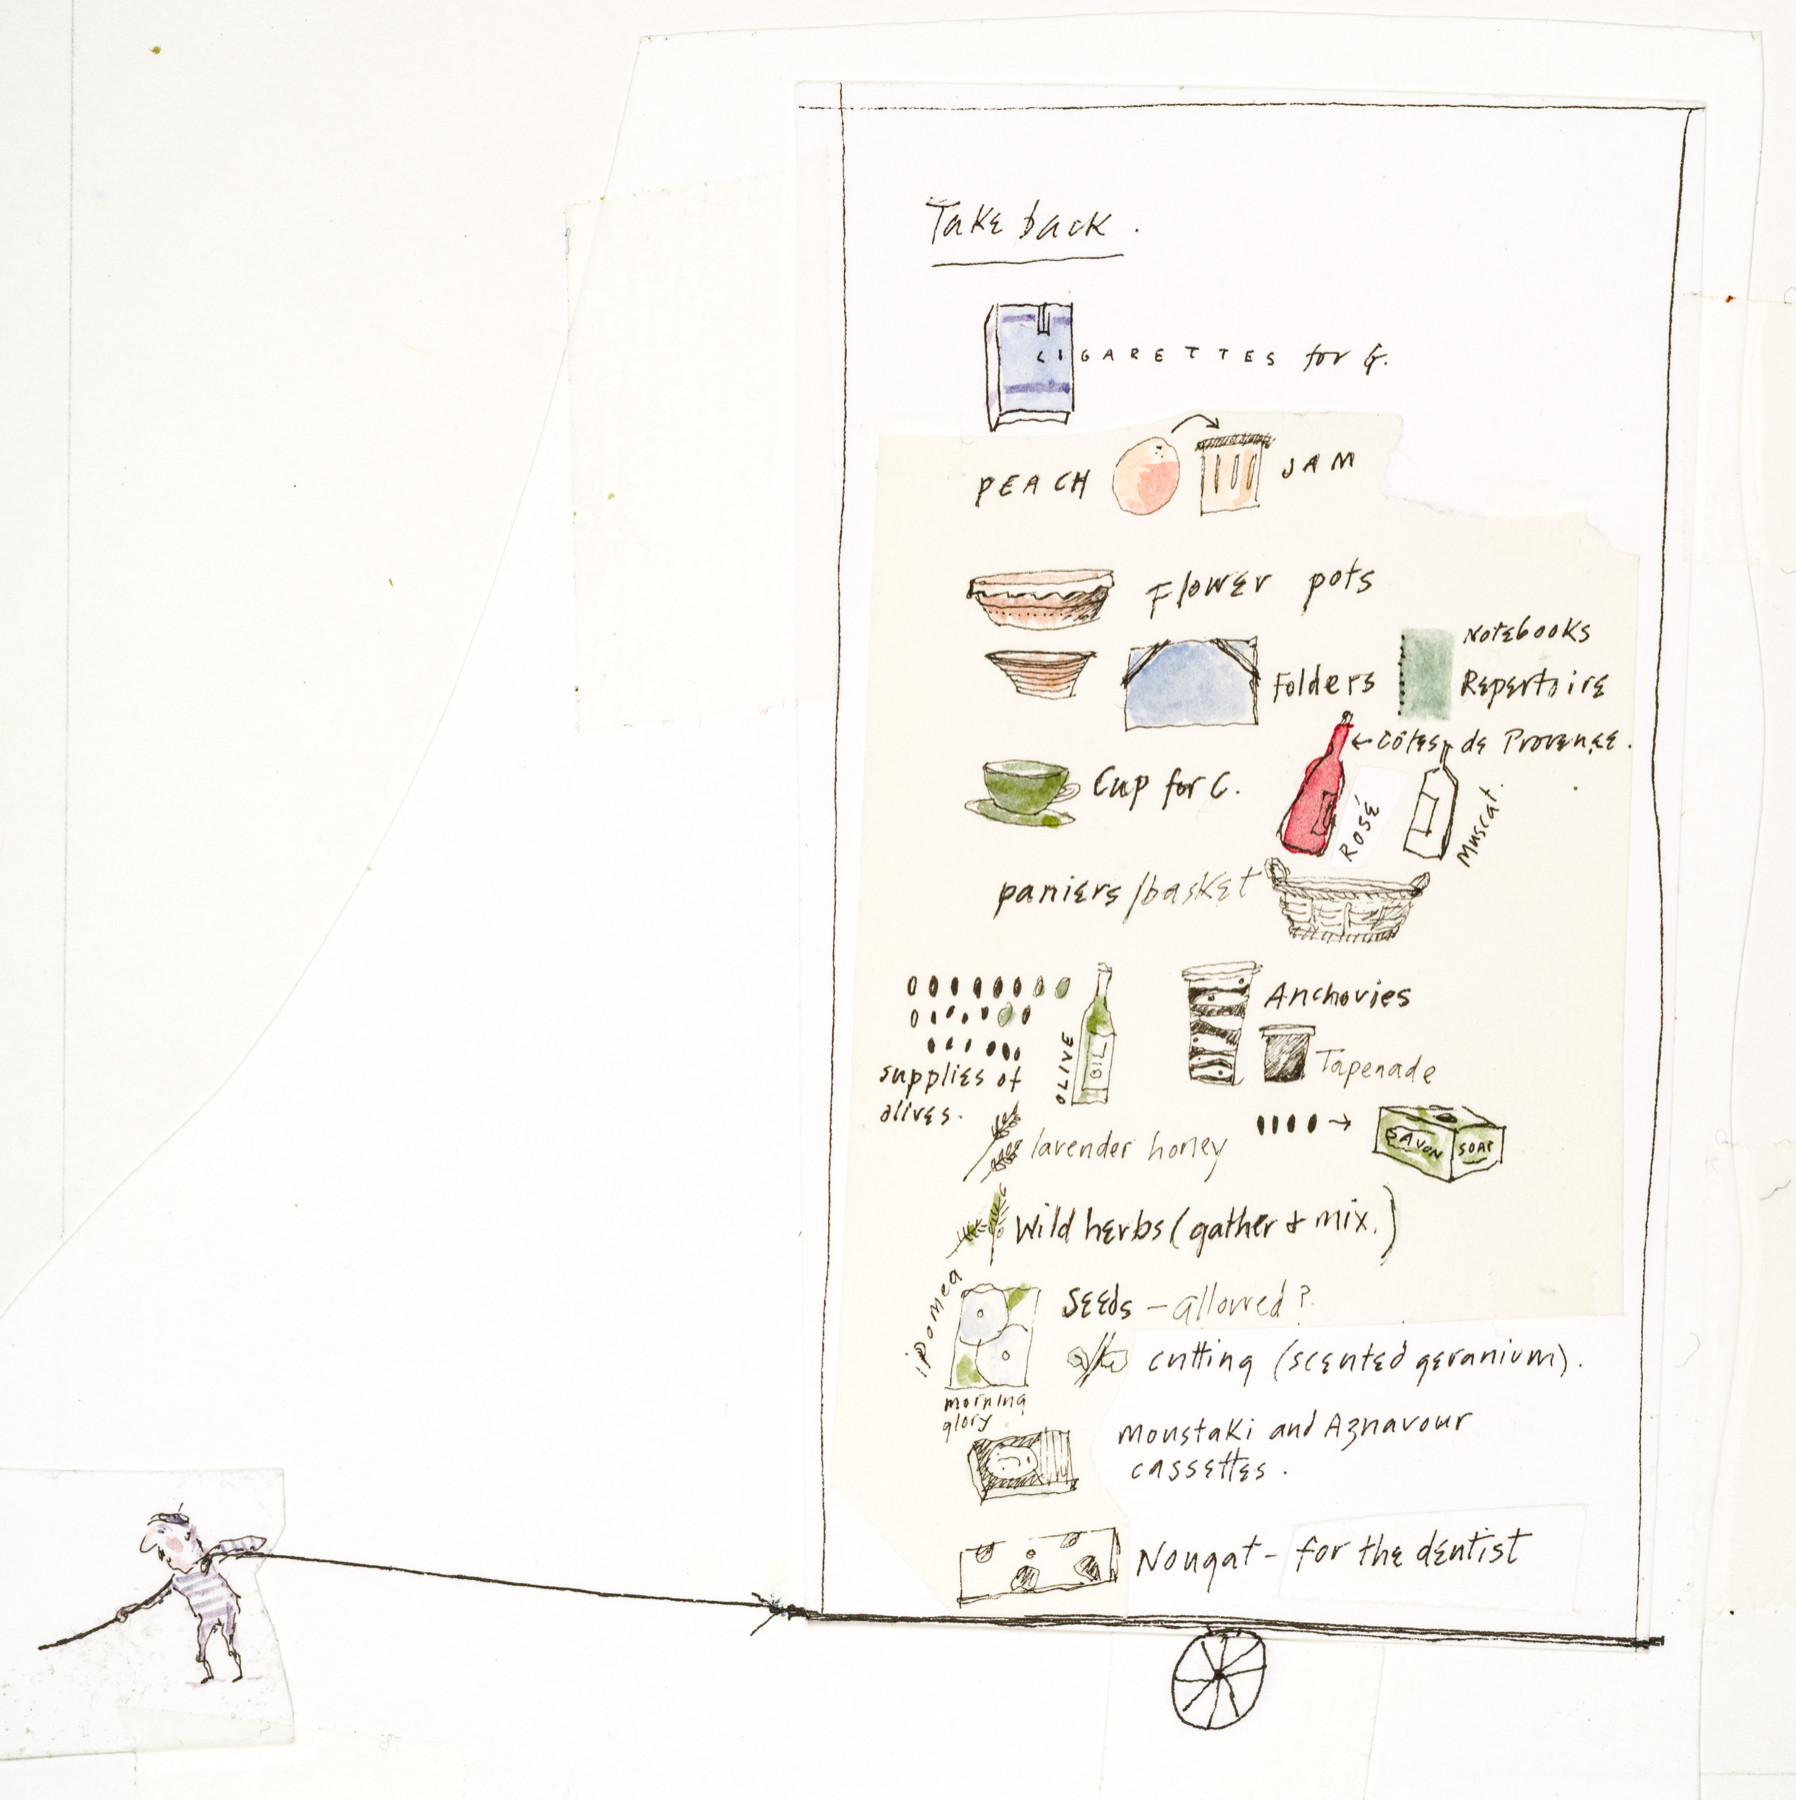 Take back.
CIGARETTES for G.
PEACH
JAM
Flower pots
Folders
Notebooks
Repertoire
← Côtes de Provence.
Cup for C.
ROSÉ
Muscat.
paniers/basket
supplies of
olives.
OLIVE
OIL
Anchovies
Tapenade
lavender honey
SAVON
SOAP
Wild herbs (gather & mix.)
ipomea
morning
glory
Seeds – allowed?
cutting (scented geranium).
Moustaki and Aznavour
cassettes.
Nougat – for the dentist